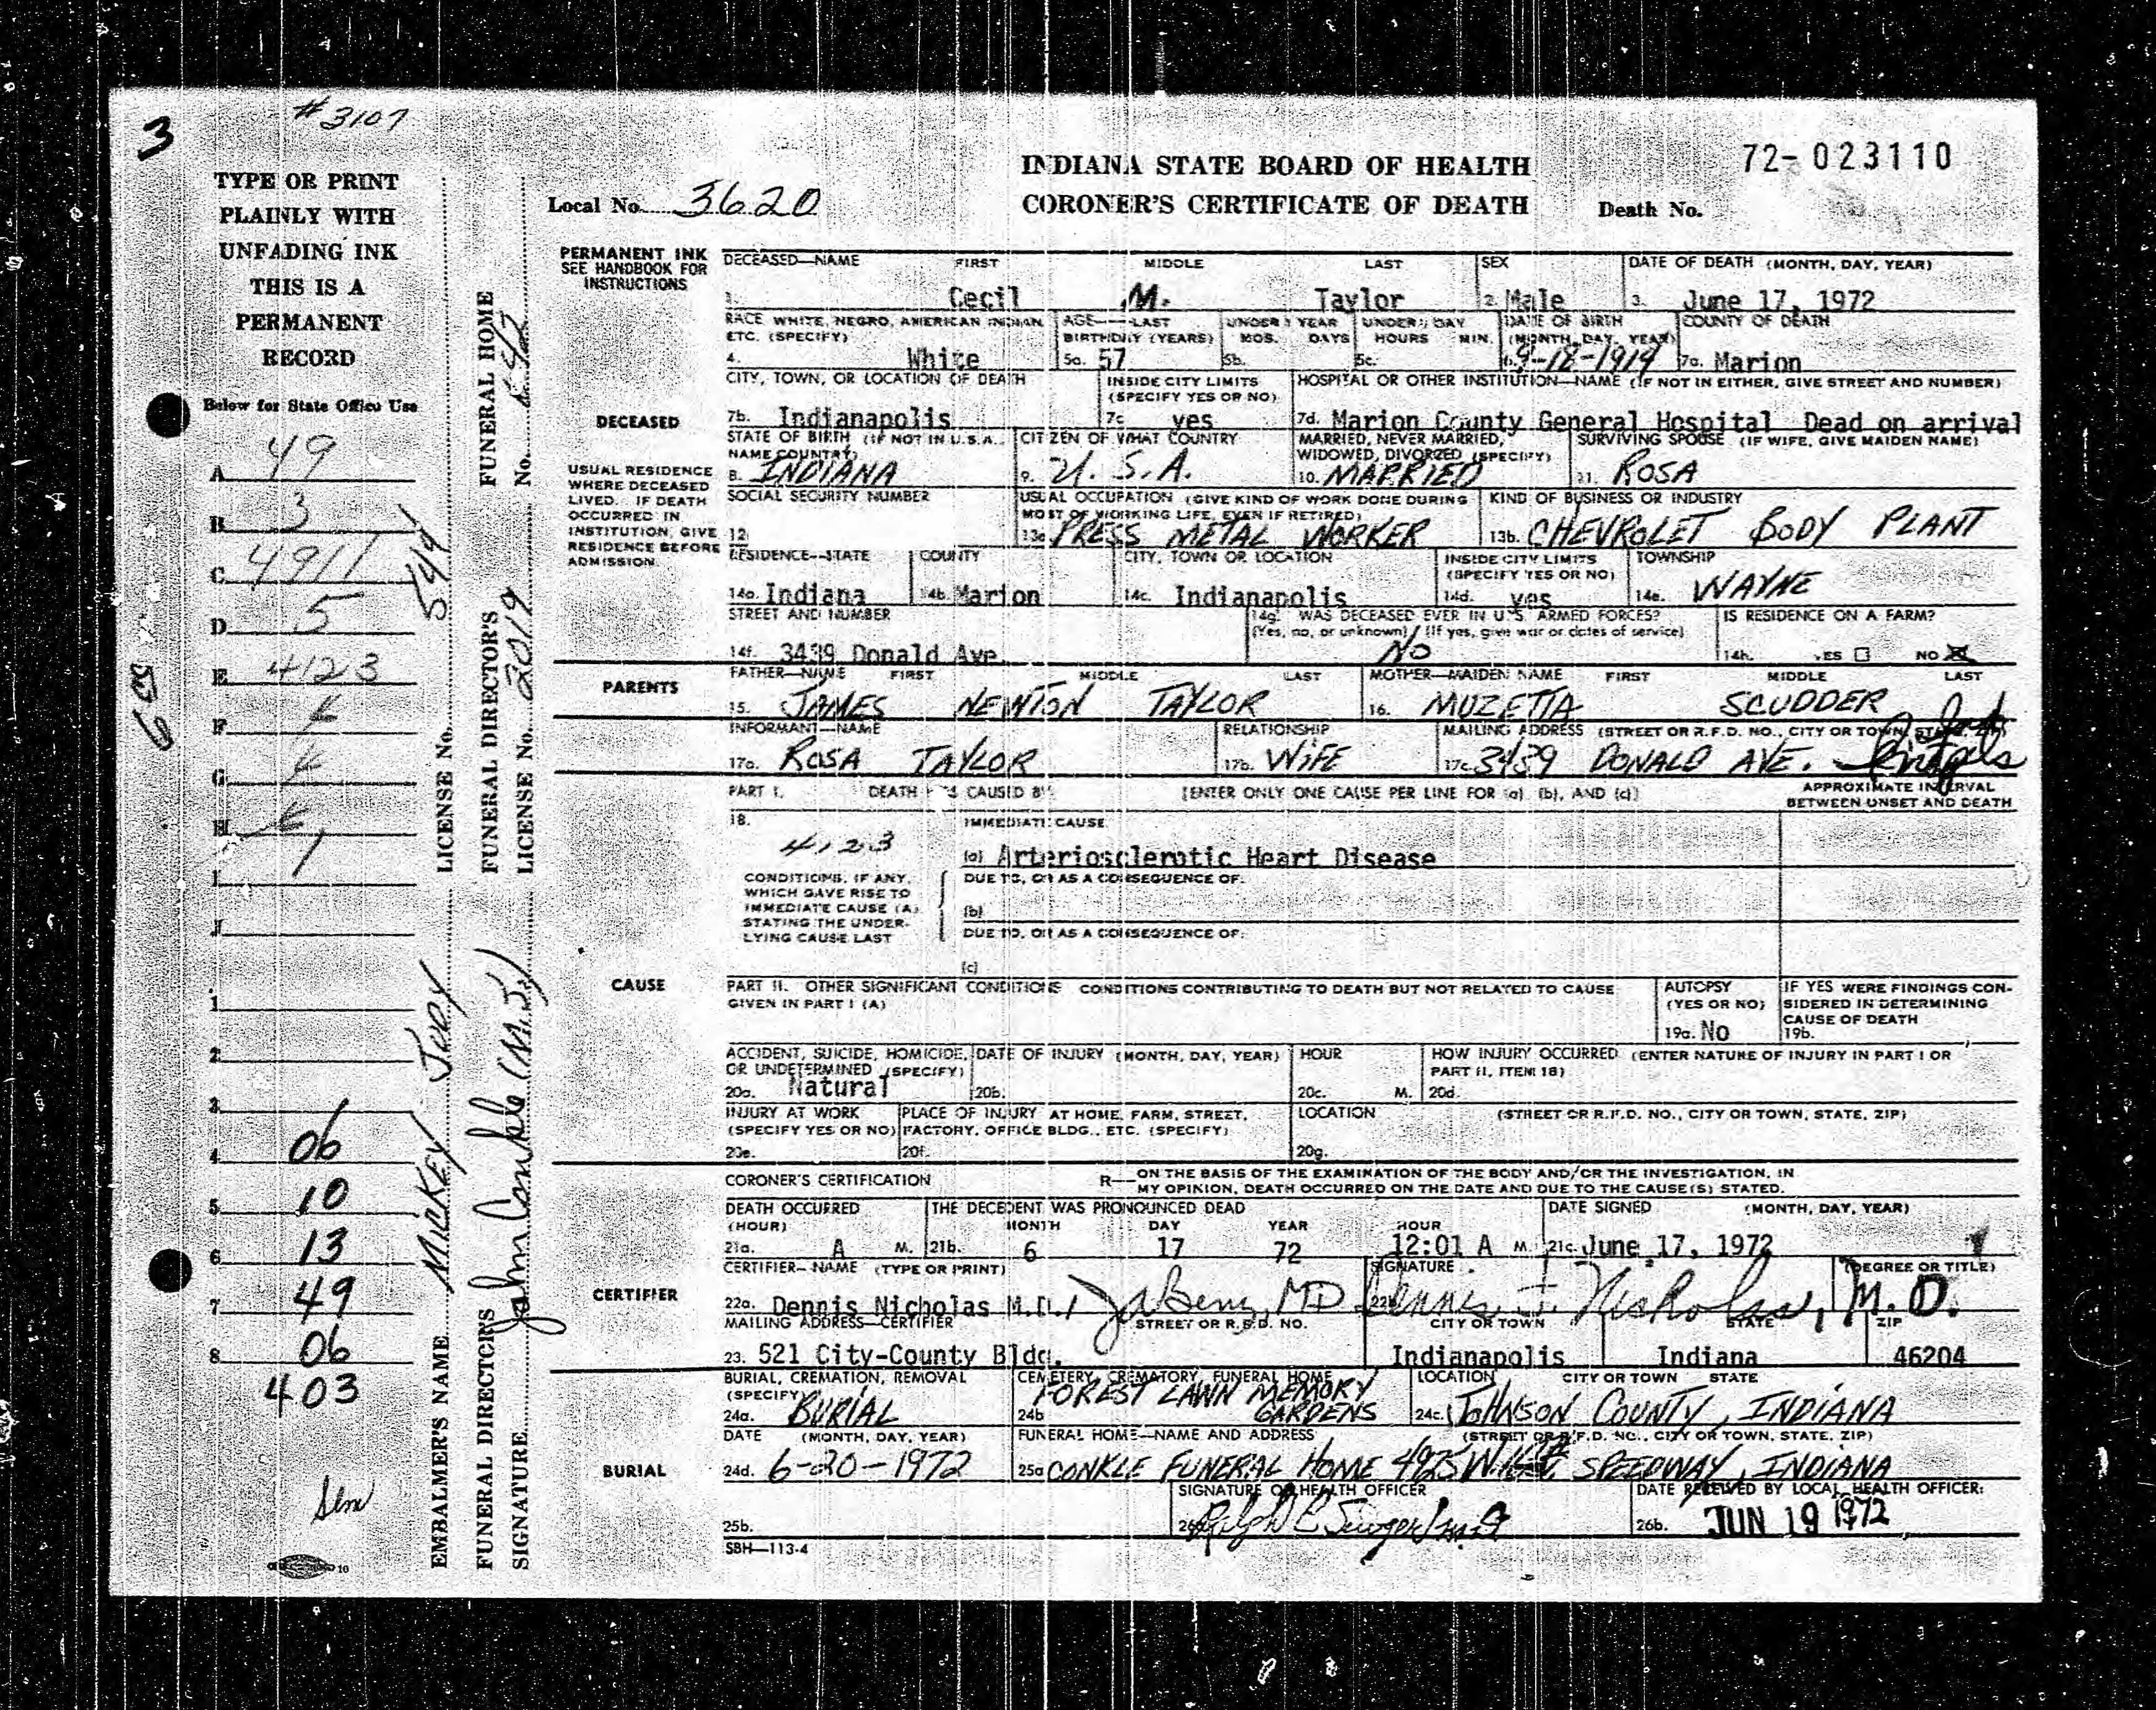 3
#3107
TYPE OR PRINT
PLAINLY WITH
UNFADING INK
THIS IS A
PERMANENT
RECORD
Below for State Office Use
A. 49
B. 3
C. 4911
D. 5
E. 4123
F.
G.
H.
I. 1
J.
1.
2.
3.
4. 06
5. 10
6. 13
7. 49
8. 06
403
10
EMBALMER'S NAME MICKEY JURY LICENSE No. 5414
FUNERAL DIRECTOR'S SIGNATURE John Conkle (M.J.) FUNERAL DIRECTOR'S LICENSE No. 2019 FUNERAL HOME No.
INDIANA STATE BOARD OF HEALTH
72-023110
Local No. 3620
CORONER'S CERTIFICATE OF DEATH
Death No.
PERMANENT INK
SEE HANDBOOK FOR
INSTRUCTIONS
DECEASED—NAME FIRST MIDDLE LAST SEX DATE OF DEATH (MONTH, DAY, YEAR)
1. Cecil M. Taylor 2. Male 3. June 17, 1972
RACE WHITE, NEGRO, AMERICAN INDIAN, ETC. (SPECIFY) AGE—LAST BIRTHDAY (YEARS) UNDER 1 YEAR MOS. DAYS UNDER 1 DAY HOURS MIN. DATE OF BIRTH (MONTH, DAY, YEAR) COUNTY OF DEATH
4. White 5a. 57 5b. 5c. 6. 9-18-1914 7a. Marion
DECEASED
CITY, TOWN, OR LOCATION OF DEATH INSIDE CITY LIMITS (SPECIFY YES OR NO) HOSPITAL OR OTHER INSTITUTION—NAME (IF NOT IN EITHER, GIVE STREET AND NUMBER)
7b. Indianapolis 7c. yes 7d. Marion County General Hospital Dead on arrival
STATE OF BIRTH (IF NOT IN U.S.A., NAME COUNTRY) CITIZEN OF WHAT COUNTRY MARRIED, NEVER MARRIED, WIDOWED, DIVORCED (SPECIFY) SURVIVING SPOUSE (IF WIFE, GIVE MAIDEN NAME)
8. INDIANA 9. U. S. A. 10. MARRIED 11. ROSA
USUAL RESIDENCE
WHERE DECEASED
LIVED. IF DEATH
OCCURRED IN
INSTITUTION, GIVE
RESIDENCE BEFORE
ADMISSION.
SOCIAL SECURITY NUMBER USUAL OCCUPATION (GIVE KIND OF WORK DONE DURING MOST OF WORKING LIFE, EVEN IF RETIRED) KIND OF BUSINESS OR INDUSTRY
12. 13a. PRESS METAL WORKER 13b. CHEVROLET BODY PLANT
RESIDENCE—STATE COUNTY CITY, TOWN OR LOCATION INSIDE CITY LIMITS (SPECIFY YES OR NO) TOWNSHIP
14a. Indiana 14b. Marion 14c. Indianapolis 14d. yes 14e. WAYNE
STREET AND NUMBER 14g. WAS DECEASED EVER IN U.S. ARMED FORCES? (Yes, no, or unknown) (If yes, give war or dates of service) IS RESIDENCE ON A FARM?
14f. 3439 Donald Ave. NO 14h. YES NO X
PARENTS
FATHER—NAME FIRST MIDDLE LAST MOTHER—MAIDEN NAME FIRST MIDDLE LAST
15. JAMES NEWTON TAYLOR 16. MUZETTA SCUDDER
INFORMANT—NAME RELATIONSHIP MAILING ADDRESS (STREET OR R.F.D. NO., CITY OR TOWN, STATE, ZIP)
17a. ROSA TAYLOR 17b. WIFE 17c. 3439 DONALD AVE.
PART I. DEATH WAS CAUSED BY: [ENTER ONLY ONE CAUSE PER LINE FOR (a), (b), AND (c)] APPROXIMATE INTERVAL BETWEEN ONSET AND DEATH
18. IMMEDIATE CAUSE
4123 (a) Arteriosclerotic Heart Disease
CONDITIONS, IF ANY,
WHICH GAVE RISE TO
IMMEDIATE CAUSE (A)
STATING THE UNDER-
LYING CAUSE LAST
DUE TO, OR AS A CONSEQUENCE OF:
(b)
DUE TO, OR AS A CONSEQUENCE OF:
(c)
CAUSE
PART II. OTHER SIGNIFICANT CONDITIONS CONDITIONS CONTRIBUTING TO DEATH BUT NOT RELATED TO CAUSE GIVEN IN PART I (A) AUTOPSY (YES OR NO) IF YES WERE FINDINGS CONSIDERED IN DETERMINING CAUSE OF DEATH
19a. No 19b.
ACCIDENT, SUICIDE, HOMICIDE, OR UNDETERMINED (SPECIFY) DATE OF INJURY (MONTH, DAY, YEAR) HOUR HOW INJURY OCCURRED (ENTER NATURE OF INJURY IN PART I OR PART II, ITEM 18)
20a. Natural 20b. 20c. M. 20d.
INJURY AT WORK (SPECIFY YES OR NO) PLACE OF INJURY AT HOME, FARM, STREET, FACTORY, OFFICE BLDG., ETC. (SPECIFY) LOCATION (STREET OR R.F.D. NO., CITY OR TOWN, STATE, ZIP)
20e. 20f. 20g.
CORONER'S CERTIFICATION R—ON THE BASIS OF THE EXAMINATION OF THE BODY AND/OR THE INVESTIGATION, IN MY OPINION, DEATH OCCURRED ON THE DATE AND DUE TO THE CAUSE(S) STATED.
DEATH OCCURRED (HOUR) THE DECEDENT WAS PRONOUNCED DEAD MONTH DAY YEAR HOUR DATE SIGNED (MONTH, DAY, YEAR)
21a. A M. 21b. 6 17 72 12:01 A M. 21c. June 17, 1972
CERTIFIER
CERTIFIER—NAME (TYPE OR PRINT) SIGNATURE (DEGREE OR TITLE)
22a. Dennis Nicholas M.D. / MD 22b. Dennis J. Nicholas, M.D.
MAILING ADDRESS—CERTIFIER STREET OR R.F.D. NO. CITY OR TOWN STATE ZIP
23. 521 City-County Bldg. Indianapolis Indiana 46204
BURIAL, CREMATION, REMOVAL (SPECIFY) CEMETERY, CREMATORY, FUNERAL HOME LOCATION CITY OR TOWN STATE
24a. BURIAL 24b. FOREST LAWN MEMORY GARDENS 24c. JOHNSON COUNTY, INDIANA
BURIAL
DATE (MONTH, DAY, YEAR) FUNERAL HOME—NAME AND ADDRESS (STREET OR R.F.D. NO., CITY OR TOWN, STATE, ZIP)
24d. 6-20-1972 25a. CONKLE FUNERAL HOME 4925 W. 16th SPEEDWAY, INDIANA
SIGNATURE OF HEALTH OFFICER DATE RECEIVED BY LOCAL HEALTH OFFICER:
25b. 26a. 26b. JUN 19 1972
SBH—113-4